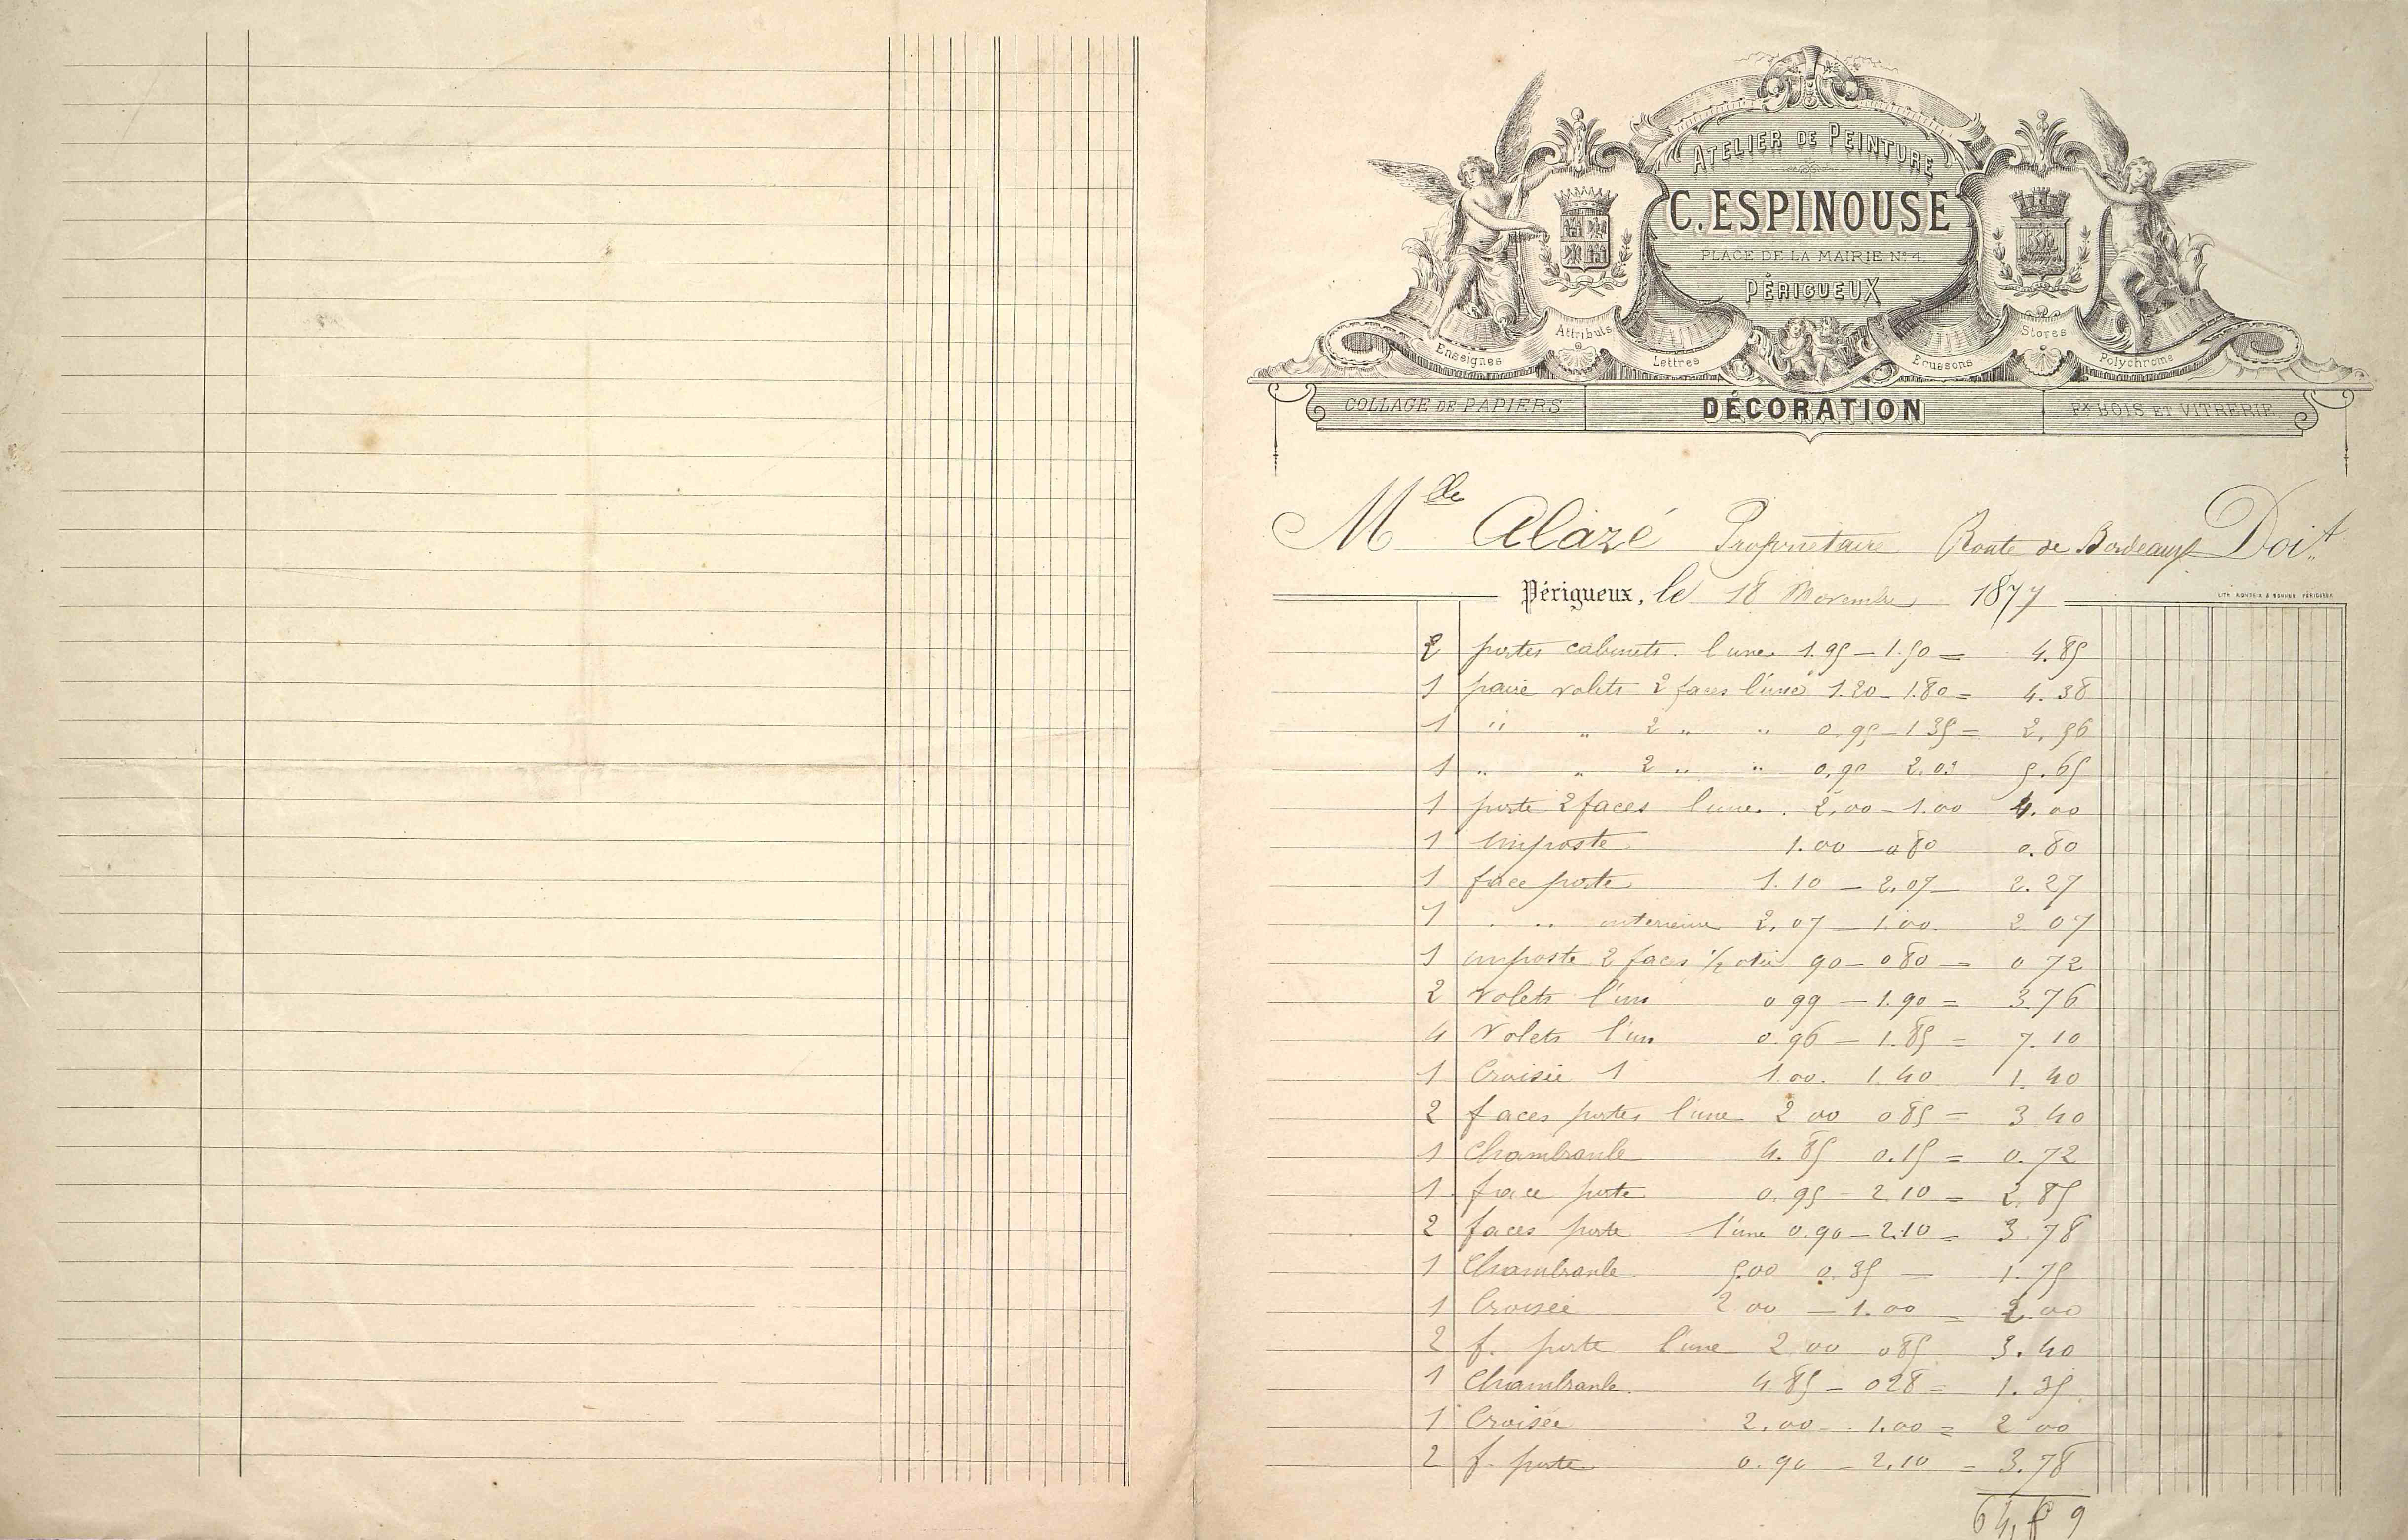 ATELIER DE PEINTURE
C. ESPINOUSE
PLACE DE LA MAIRIE N° 4.
PÉRIGUEUX
Enseignes Attributs Lettres Ecussons Stores Polychrome
COLLAGE DE PAPIERS DÉCORATION FX BOIS ET VITRERIE
Mlle Alazé Propriétaire Route de Bordeaux Doit
Périgueux, le 18 Novembre 1877
LITH. RONTEIX & PÉRIGUEUX
2 portes cabinets. l'une 1.95 – 1.50 = 4.85
1 paire volets 2 faces l'une 1.20 – 1.80 = 4.38
1 " " 2 " " 0.95 – 1 35 = 2.56
1 " " 2 " " 0,90 2.03 5.65
1 porte 2 faces l'une. 2,00 – 1.00 4.00
1 imposte 1.00 – 0 80 0.80
1 face porte 1.10 – 2.07 – 2.27
1 " " interieure 2,07 – 1.00. 2 07
1 imposte 2 faces 1/2 90 – 0 80 = 0 72
2 volets l'un 0 99 – 1.90 = 3.76
4 Volets l'un 0.96 – 1.85 = 7.10
1 Croisée 1 1.00. 1.40 1.40
2 faces portes l'une 2 00 0 85 = 3 40
1 Chambranle 4.85 0.15 = 0.72
1 face porte 0.95 – 2.10 = 2.85
2 faces porte l'une 0.90 – 2.10 = 3.78
1 Chambranle 5.00 0.35 – 1.75
1 Croisée 2 00 – 1.00 = 2.00
2 f. porte l'une 2 00 0 85 3.40
1 Chambranle. 4 85 – 0 28 = 1.35
1 Croisée 2.00 – 1.00 = 2 00
2 f. porte 0.90 – 2.10 = 3.78